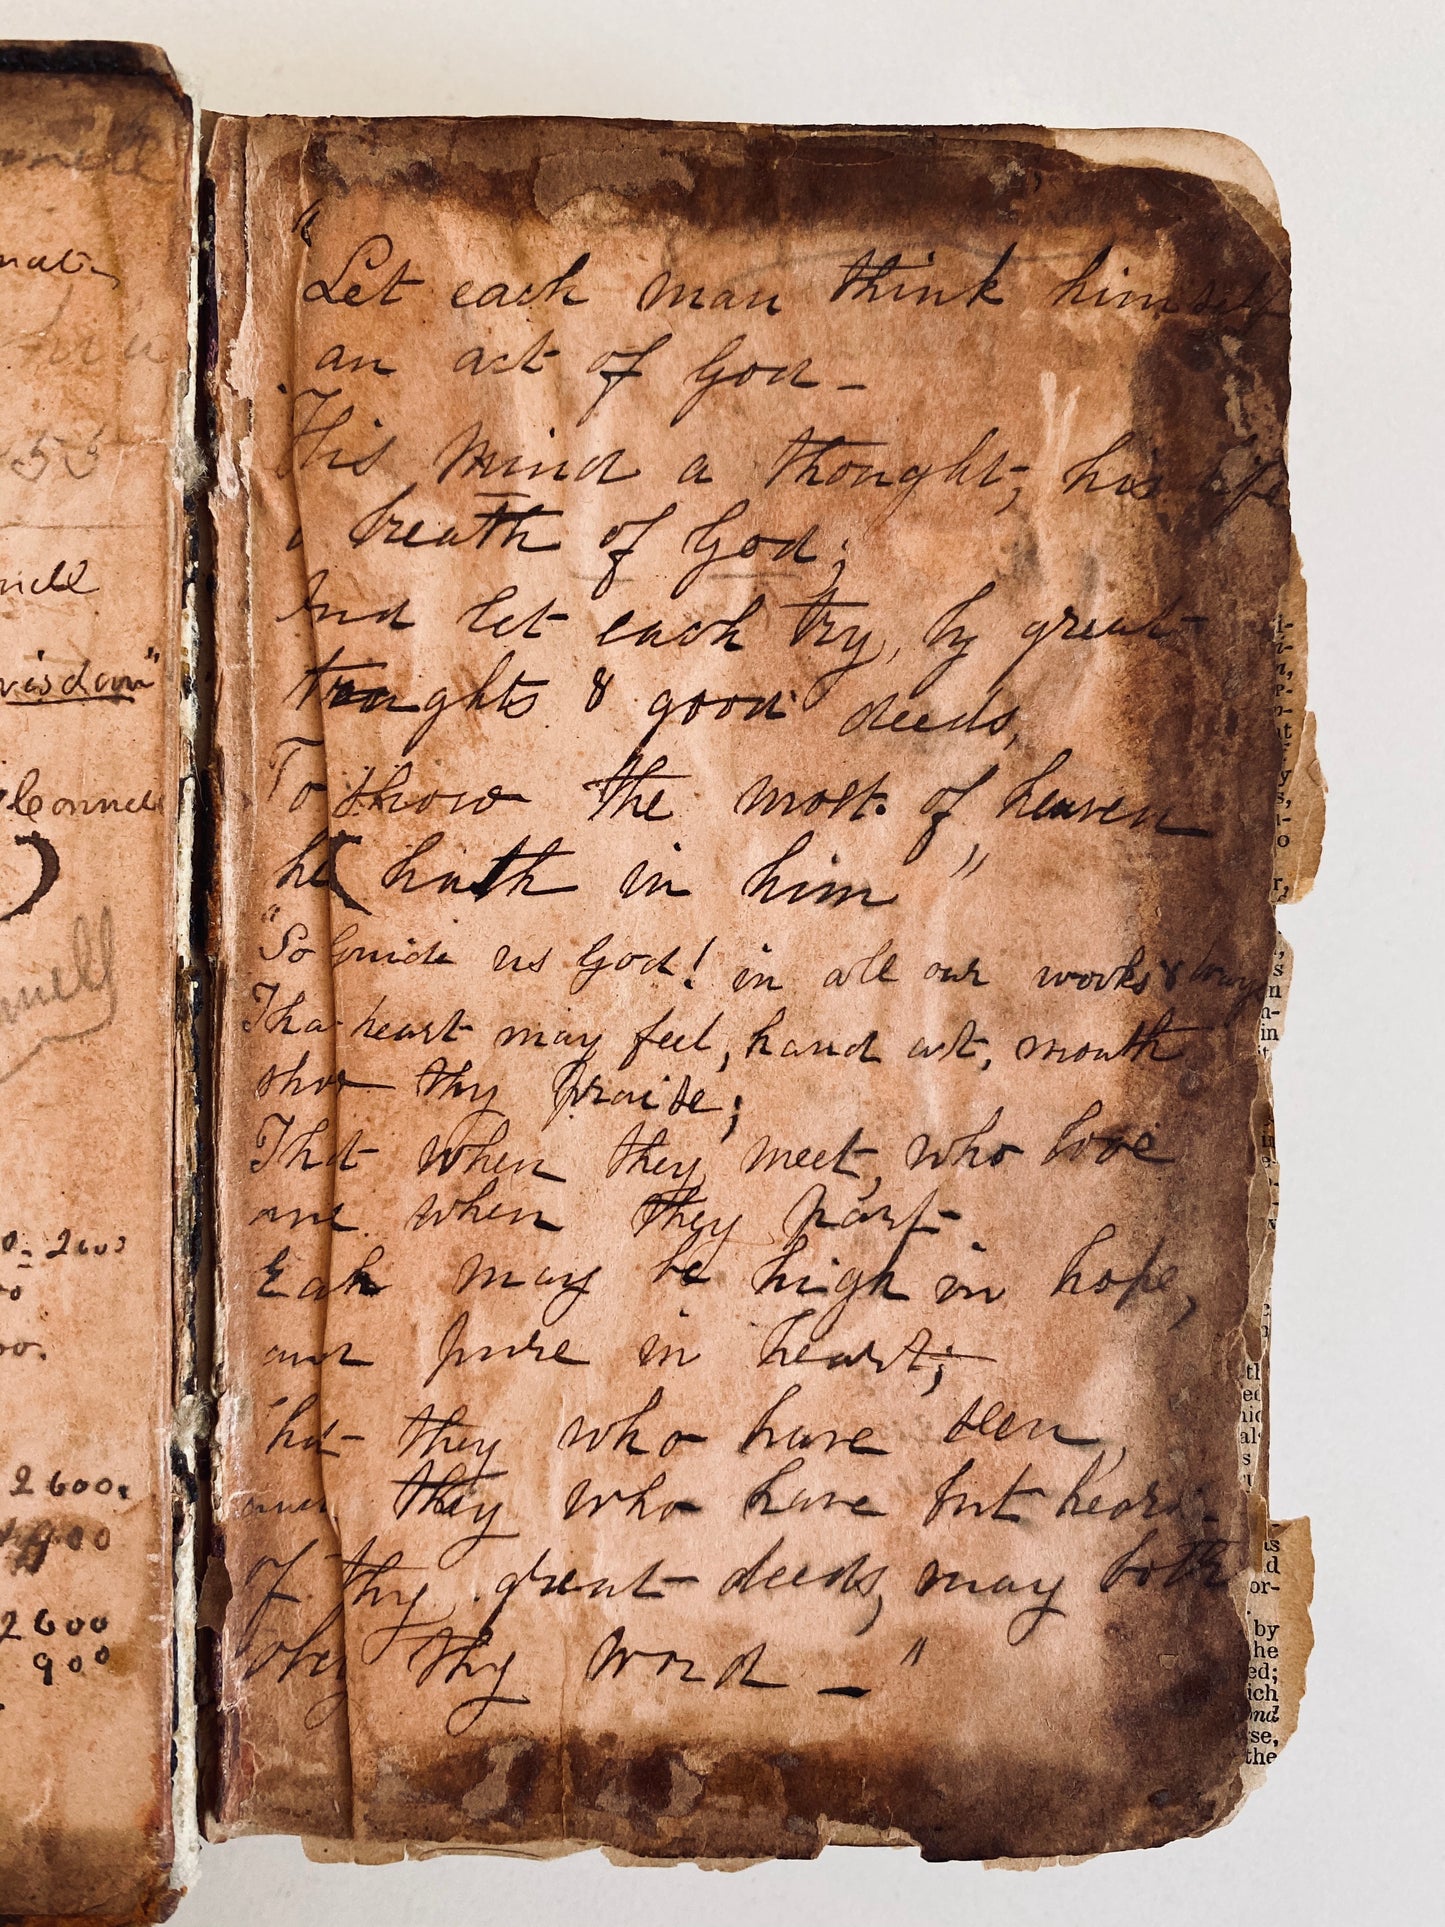 "Let each man think himself
an act of God -
His mind a thought, his life
a breath of God;
And let each try, by great
thoughts & good deeds,
To show the most. of heaven
he ( hath in him "
"So Guide us God! in all our works & ways
Tha heart may feel, hand act, mouth
show thy praise;
That when they meet, who love
and when they part
Each may be high in hope,
and pure in heart;
That they who have seen,
and they who have but heard
Of thy great deeds, may both
obey thy word - "
nell
visdom"
Connell
)
2600
2600.
900
2600
900
by
he
ed;
ich
and
rse,
the